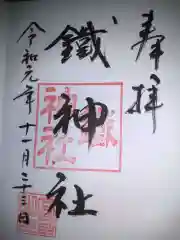 奉拝
鐵神社
令和元年十一月二十三日